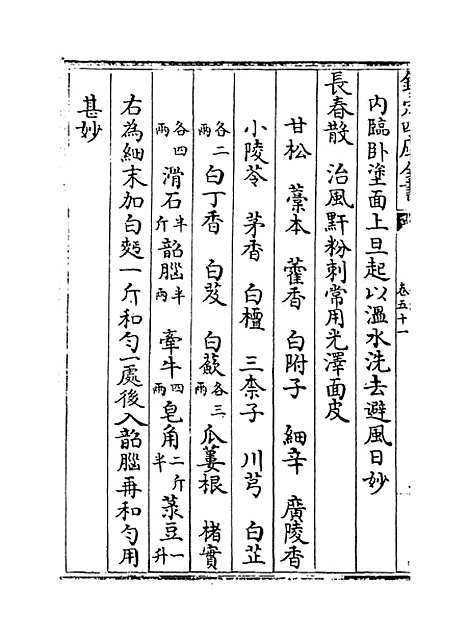 欽定四庫全書
卷五十一
内臨卧塗面上旦起以溫水洗去避風日妙
長春散 治風䵟粉刺常用光澤面皮
甘松 藁本 藿香 白附子 細辛 廣陵香
小陵苓 茅香 白檀 三柰子 川芎 白芷
各二兩 白丁香 白芨 白蘝各三兩 瓜蔞根 楮實
各四兩 滑石半斤 韶腦半兩 牽牛四兩 皂角二斤半 菉豆一升
右為細末加白麪一斤和勻一處後入韶腦再和勻用
甚妙